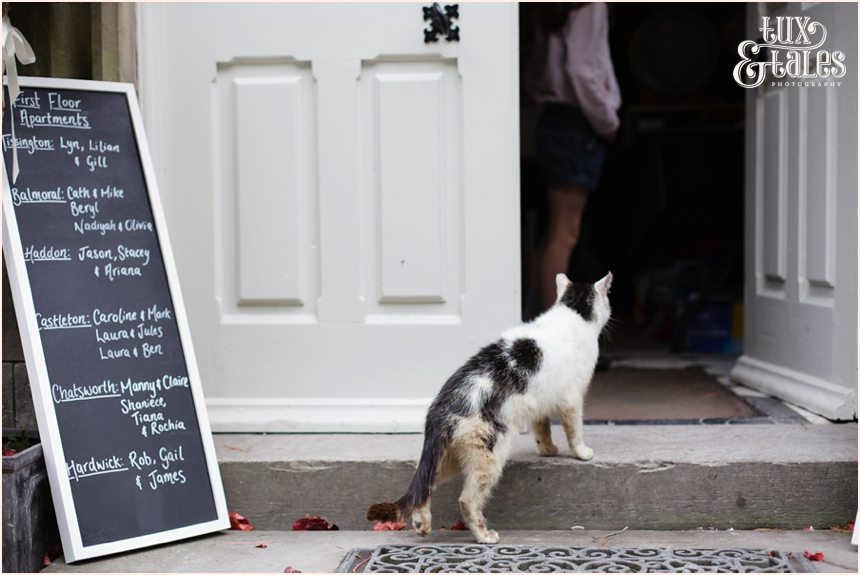 First Floor
Apartments
Tissington: Lyn, Lilian
& Gill
Balmoral: Cath & Mike
Beryl
Nadiyah & Olivia
Haddon: Jason, Stacey
& Ariana
Castleton: Caroline & Mark
Laura & Jules
Laura & Ben
Chatsworth: Manny & Claire
Shaniece,
Tiana
& Rochia
Hardwick: Rob, Gail
& James
tux
& tales
PHOTOGRAPHY